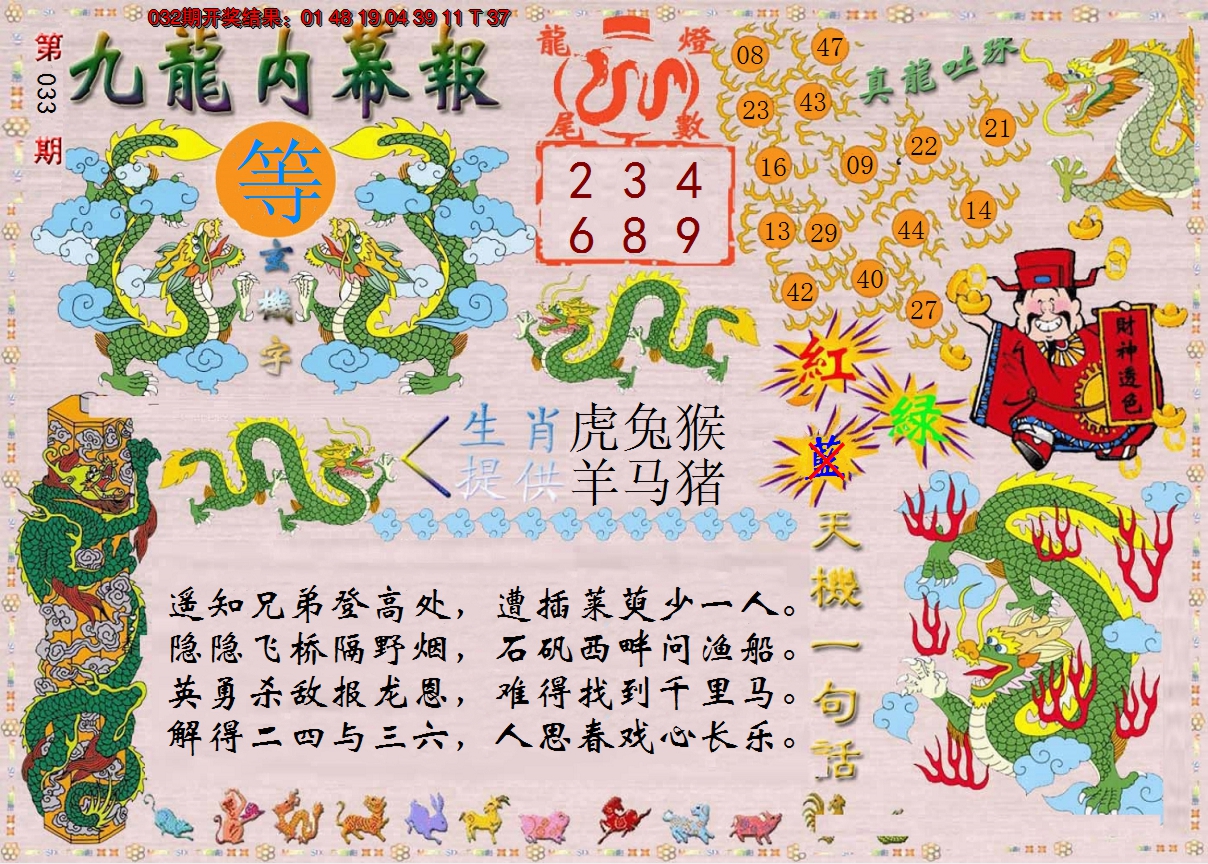 032期开奖结果：01 48 19.04 39 11 T 37
第033期
九龍内幕報
等
玄機字
龍燈尾數
2 3 4
6 8 9
真龍吐珠
08 47
23 43
16 09 22 21
13 29 44 14
42 40 27
紅
綠
藍
財神透色
生肖 虎兔猴
提供 羊马猪
天機一句話
遥知兄弟登高处，遭插莱萸少一人。
隐隐飞桥隔野烟，石矶西畔问渔船。
英勇杀敌报龙恩，难得找到千里马。
解得二四与三六，人思春戏心长乐。